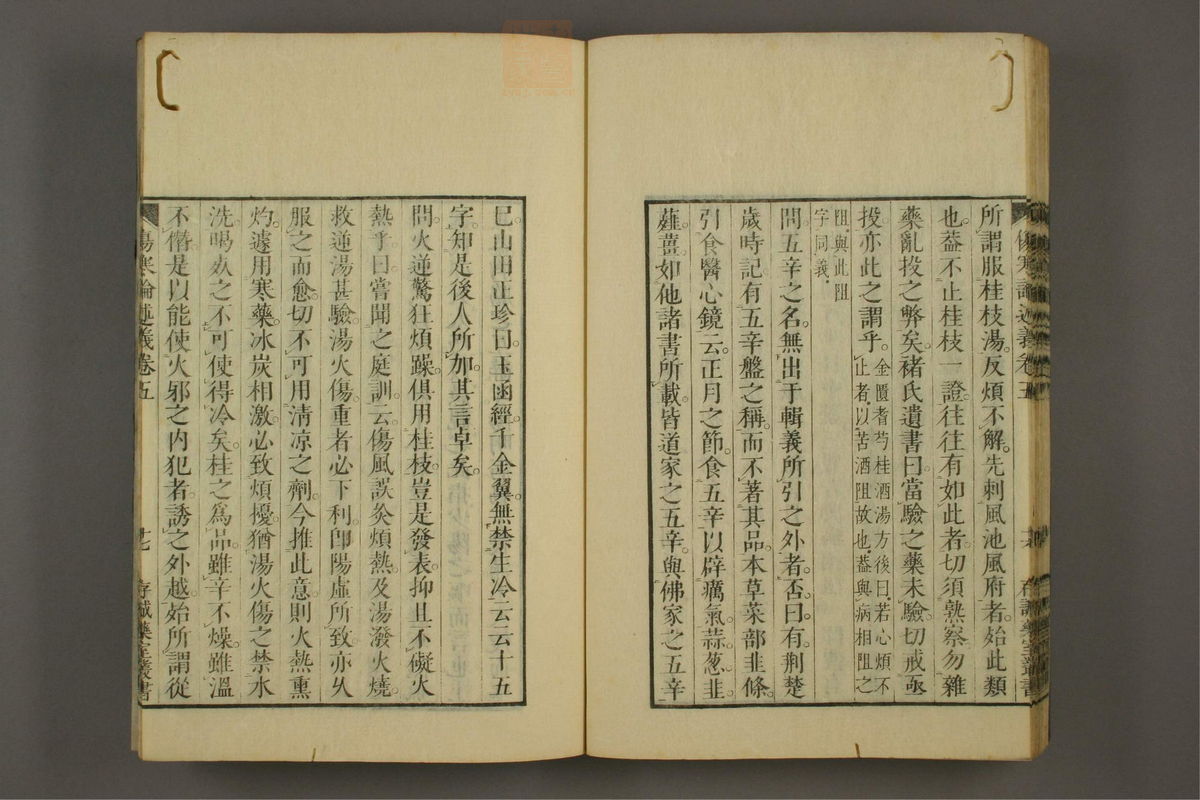 所謂服桂枝湯反煩不解先刺風池風府者始此類
也。葢不止桂枝一證往往有如此者切須熟察勿雜
藥亂投之弊矣。褚氏遺書曰當驗之藥未驗。切戒亟
投。亦此之謂乎。金匱耆芍桂酒湯方後曰。若心煩不
止者。以苦酒阻故也。葢與病相阻之
阻。與此阻
字同義。
問五辛之名。無出于輯義所引之外者。否。曰。有荆楚
歲時記有五辛盤之稱。而不著其品。本草菜部韭條。
引食醫心鏡云。正月之節。食五辛以辟癘氣。蒜。葱。韭
薤。薑。如他諸書所載。皆道家之五辛。與佛家之五辛
傷寒論述義卷五
存誠藥室叢書
已山田正珍曰。玉函經。千金翼。無禁生冷云云十五
字。知是後人所加。其言卓矣。
問。火逆驚狂煩躁。俱用桂枝。豈是發表。抑且不礙火
熱乎。曰。嘗聞之庭訓。云。傷風誤灸煩熱。及湯潑火燒。
救逆湯甚驗。湯火傷。重者必下利。卽陽虛所致。亦以
服之而愈。切不可用淸凉之劑。今推此意。則火熱熏
灼。遽用寒藥。冰炭相激。必致煩擾。猶湯火傷之禁水
洗。喝
之不可使得冷矣。桂之爲品。雖辛不燥。雖溫
不僭。是以能使火邪之内犯者。誘之外越。始所謂從
傷寒論述義卷五
十七
存誠藥室叢書